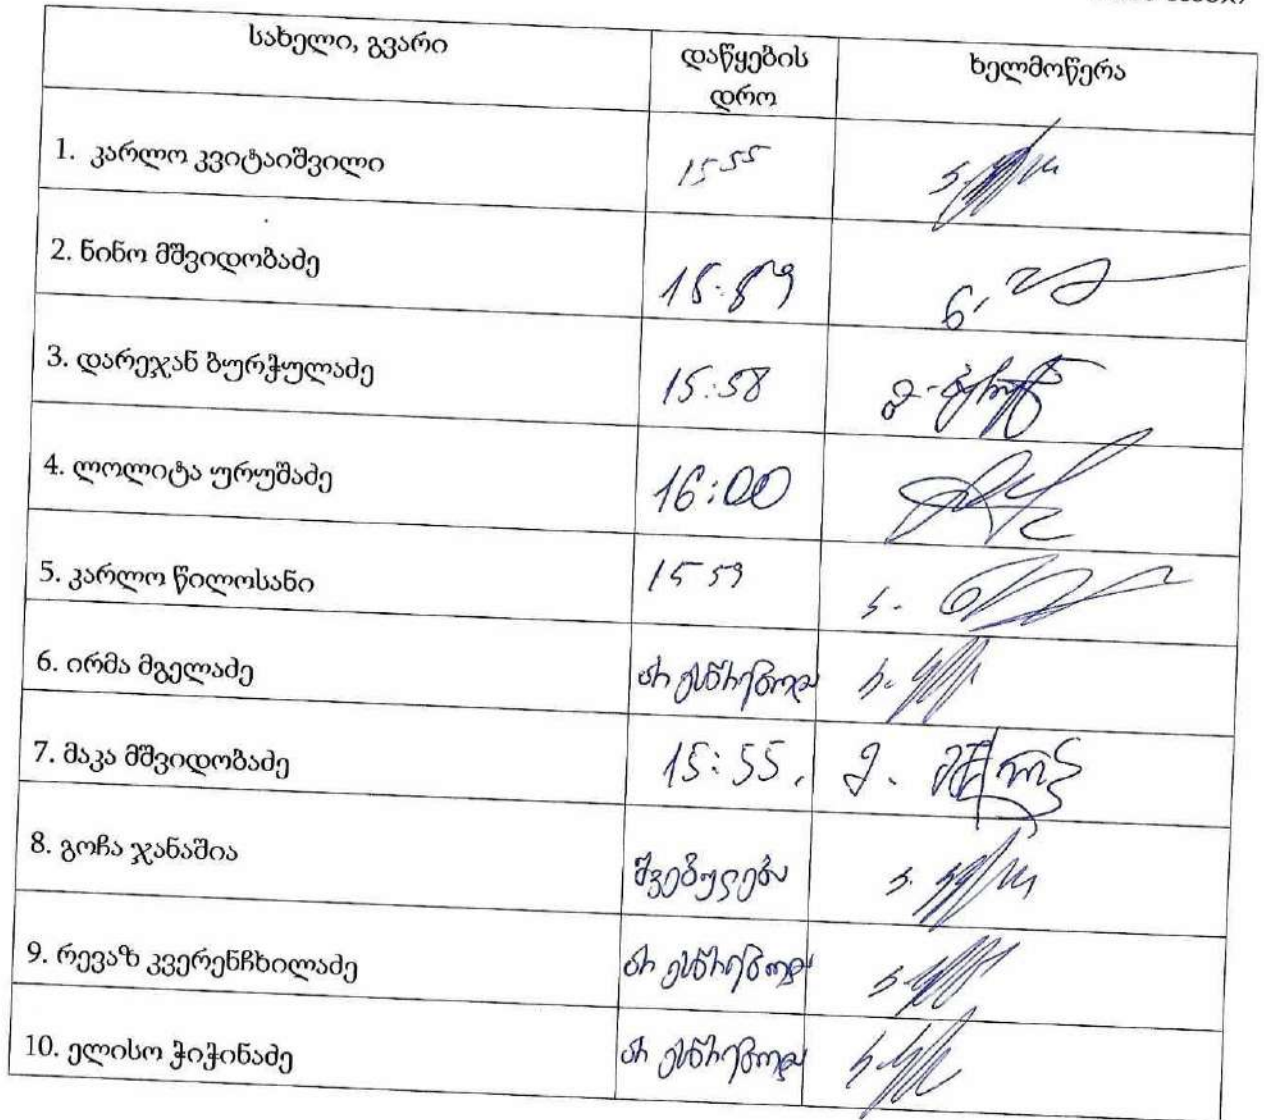 სახელი, გვარი
დაწყების დრო
ხელმოწერა
1. კარლო კვიტაიშვილი 15 55
2. ნინო მშვიდობაძე 15:59 ნ.
3. დარეჯან ბურჭულაძე 15:58
4. ლოლიტა ურუშაძე 16:00
5. კარლო წილოსანი 15 59 კ.
6. ირმა მგელაძე არ ესწრებოდა
7. მაკა მშვიდობაძე 15:55. მ.
8. გოჩა ჯანაშია შვებულება
9. რევაზ კვერენჩხილაძე არ ესწრებოდა
10. ელისო ჭიჭინაძე არ ესწრებოდა